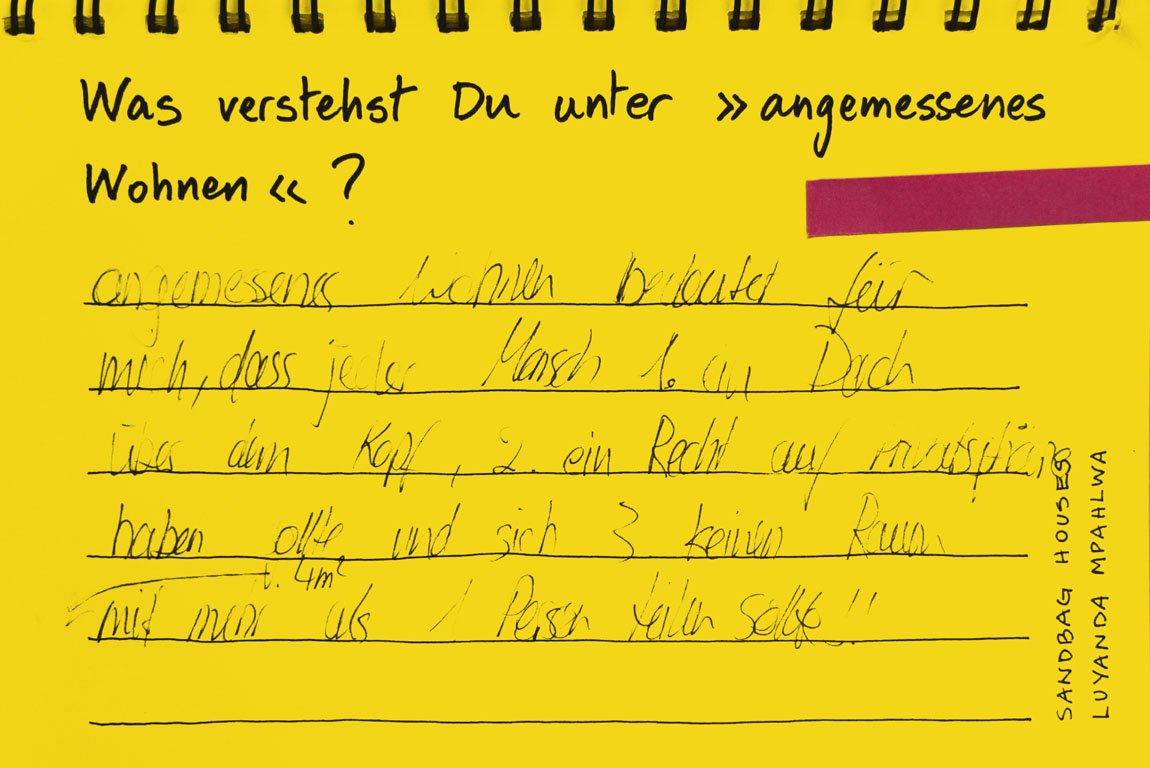 Was verstehst Du unter »angemessenes
Wohnen« ?
angemessenes Wohnen bedeutet für
mich, dass jeder Mensch 1. ein Dach
über dem Kopf, 2. ein Recht auf Privatsphäre
haben ollte und sich 3 keinen Raum
v. 4m²
mit mehr als 1 Person teilen sollte!!
SANDBAG HOUSES
LUYANDA MPAHLWA